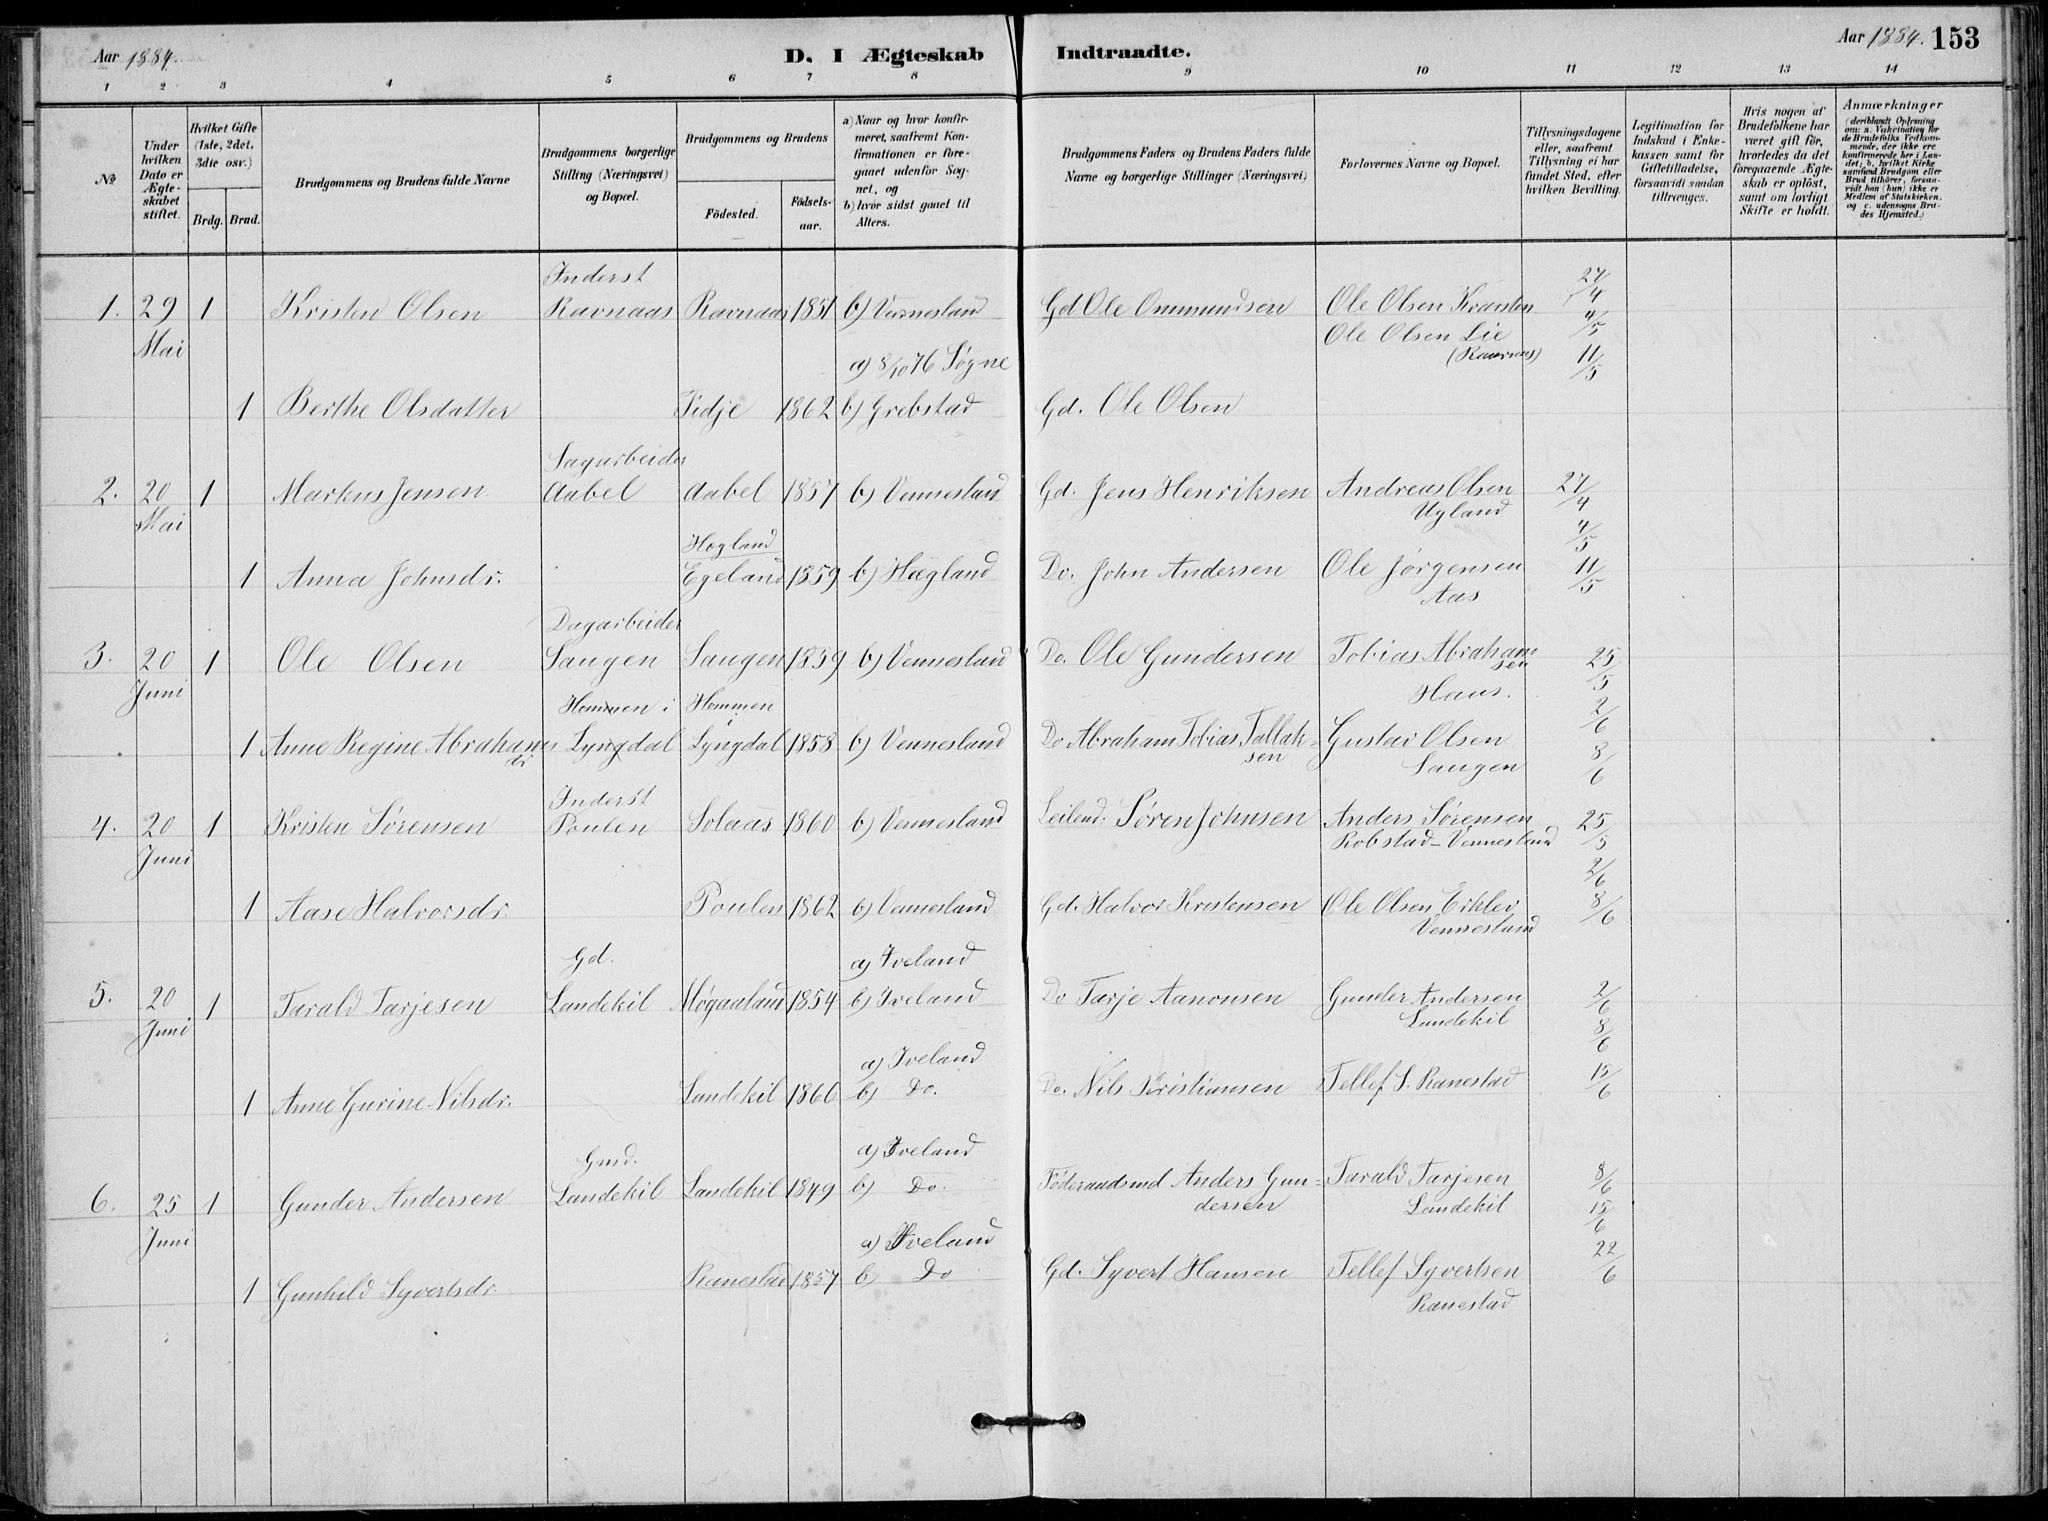 Aar 1884.
D. I Ægteskab Indtraadte.
Aar 1884. 153
1 2 3 4 5 6 7 8 9 10 11 12 13 14
№
Under hvilken Dato er Ægteskabet stiftet.
Hvilket Gifte (1ste, 2det, 3die osv.)
Brdg. Brud.
Brudgommens og Brudens fulde Navne
Brudgommens borgerlige Stilling (Næringsvei) og Bopæl.
Brudgommens og Brudens
Födested. Födselsaar.
a) Naar og hvor konfirmeret, saafremt Konfirmationen er foregaaet udenfor Sognet, og
b) hvor sidst gaaet til Alters.
Brudgommens Faders og Brudens Faders fulde Navne og borgerlige Stillinger (Næringsvei)
Forlovernes Navne og Bopæl.
Tillysningsdagene eller, saafremt Tillysning ei har fundet Sted, efter hvilken Bevilling.
Legitimation for Indskud i Enkekassen samt for Giftetilladelse, forsaavidt saadan tiltrænges.
Hvis nogen af Brudefolkene har været gift för, hvorledes da det foregaaende Ægteskab er oplöst, samt om lovligt Skifte er holdt.
Anmærkninger (deriblandt Oplysning om: a. Vakcination for de Brudefolks Vedkommende, der ikke ere konfirmerede her i Landet; b. hvilket Kirkesamfund Brudgom eller Brud tilhörer, forsaavidt han (hun) ikke er Medlem af Statskirken. og c. udensogns Brudes Hjemsted.)
Inderst 27/4
1. 29 1 Kristen Olsen Ravnaas Ravnaas 1851 b) Vennesland Gd Ole Ommundsen Ole Olsen Kvarsten 4/5
Mai Ole Olsen Lie
a) 8/10 76 Søgne (Ravnaas) 11/5
1 Berthe Olsdatter Tidje 1862 b) Grebstad Gd. Ole Olsen
Sagarbeider
2. 20 1 Markus Jensen Aabel Aabel 1857 b) Vennesland Gd. Jens Henriksen Andreas Olsen 27/4
Mai Uglland
Hægland 4/5
1 Anna Johnsdr. Egeland 1859 b) Hægland Do. John Andersen Ole Jørgensen 11/5
Aas
Dagarbeider
3. 20 1 Ole Olsen Saugen Saugen 1859 b) Vennesland Do. Ole Gundersen Tobias Abrahamsen 25/5
Juni Haus.
Hommen i Hommen i 2/6
1 Anne Regine Abrahamsdr Lyngdal Lyngdal 1858 b) Vennesland Do Abraham Tobias Tallaksen Gustav Olsen 8/6
Saugen
Inderst
4. 20 1 Kristen Sørensen Poulen Solaas 1860 b) Vennesland Leilend. Søren Johnsen Anders Sørensen 25/5
Juni Robstad - Vennesland
2/6
1 Aase Halvorsdr. Poulen 1862 b) Vennesland Gd. Halvor Kristensen Ole Olsen Eikler 8/6
Vennesland
Gd. a) Iveland
5. 20 1 Tarald Tarjesen Landekil Møgaaland 1854 b) Iveland Do Tarje Aanonsen Gunder Andersen 2/6
Juni Landekil 8/6
a) Iveland
1 Anne Gurine Nilsdr. Landekil 1860 b) Do. Do. Nils Kristiansen Tellef S. Ranestad 15/6
Gmd. a) Iveland
6. 25 1 Gunder Andersen Landekil Landekil 1849 b) Do. Føderaadsmd Anders Gundersen Tarald Tarjesen 8/6
Juni Landekil 15/6
a) Iveland
1 Gunhild Syvertsdr. Ranestad 1857 b) Do Gd. Syvert Hansen Tellef Syvertsen 22/6
Ranestad